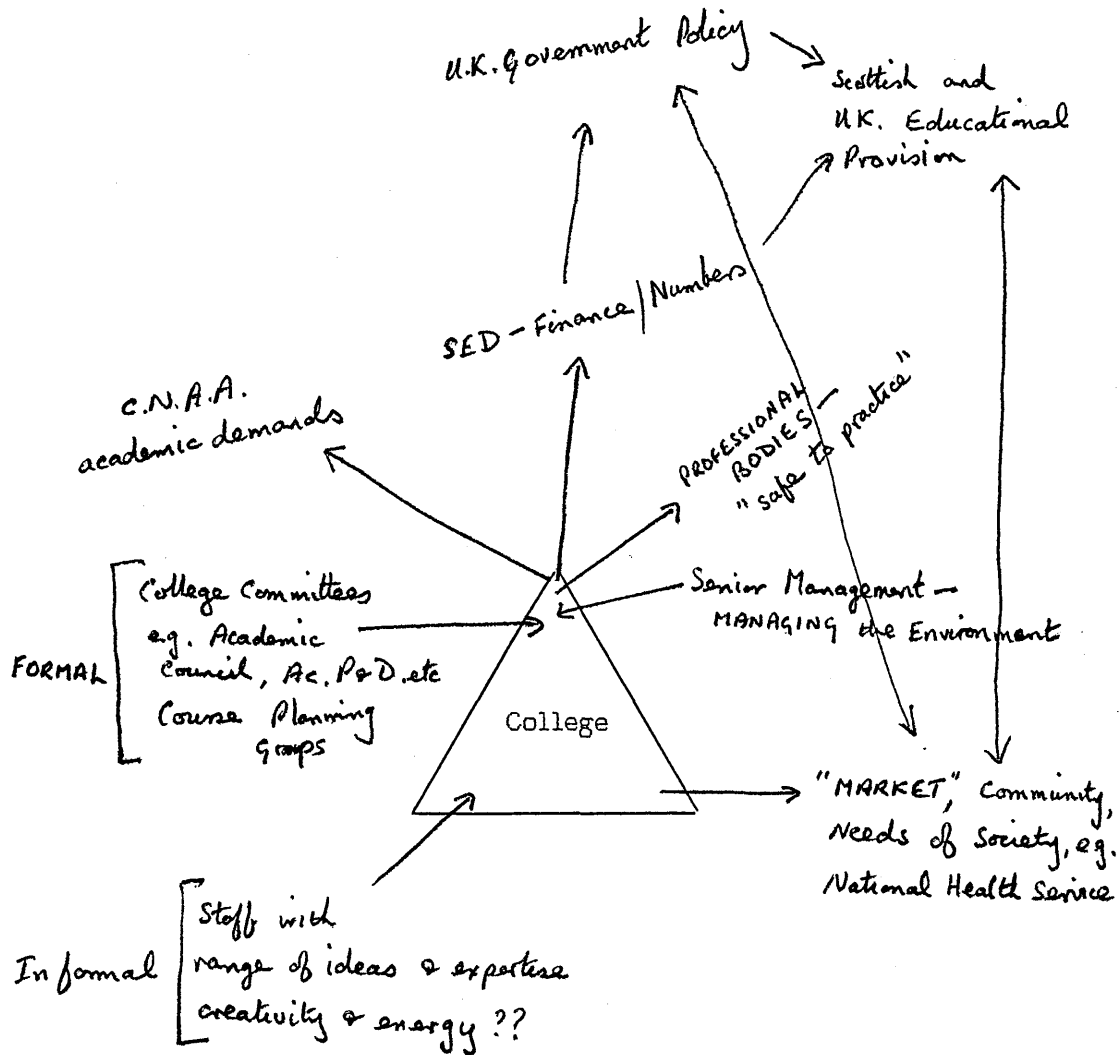 U.K. Government Policy
Scottish and
UK. Educational
Provision
SED - Finance/Numbers
C.N.A.A.
academic demands
PROFESSIONAL
BODIES -
"safe to practice"
FORMAL
College Committees
e.g. Academic
Council, Ac. P & D. etc
Course Planning
Groups
Senior Management -
MANAGING the Environment
College
"MARKET", Community,
Needs of Society, eg.
National Health Service
Informal
Staff with
range of ideas & expertise
creativity & energy ??